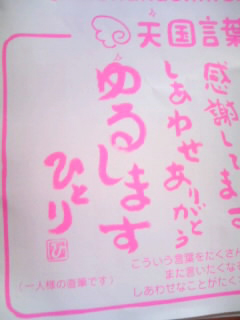 天国言葉
感謝してます
しあわせ
ありがとう
ゆるします
ひとり
ひ
(一人様の直筆です)
こういう言葉をたくさん
また言いたくなる
しあわせなことがたく